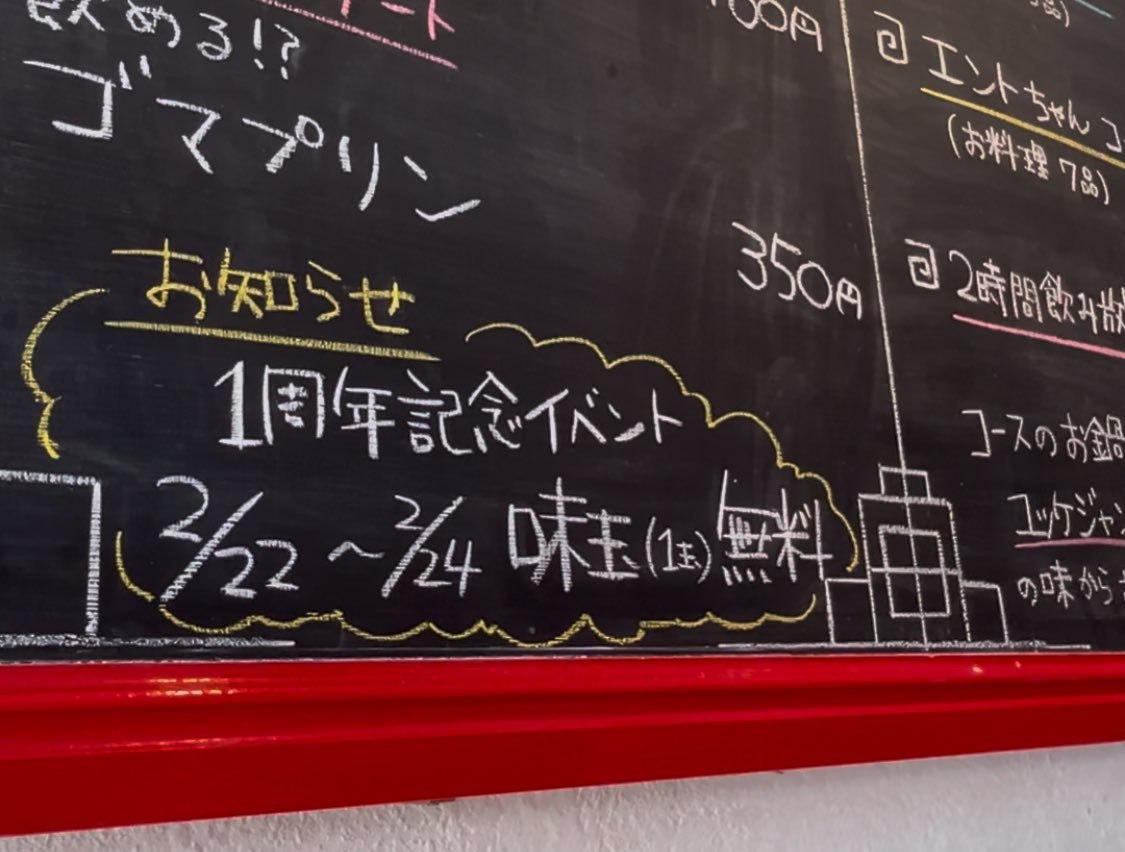 飲める!?
ゴマプリン
350円
お知らせ
1周年記念イベント
2/22～2/24 味玉(1玉)無料
エントちゃん
(お料理 7品)
2時間飲み
コースのお鍋
ユッケジャン
の味から